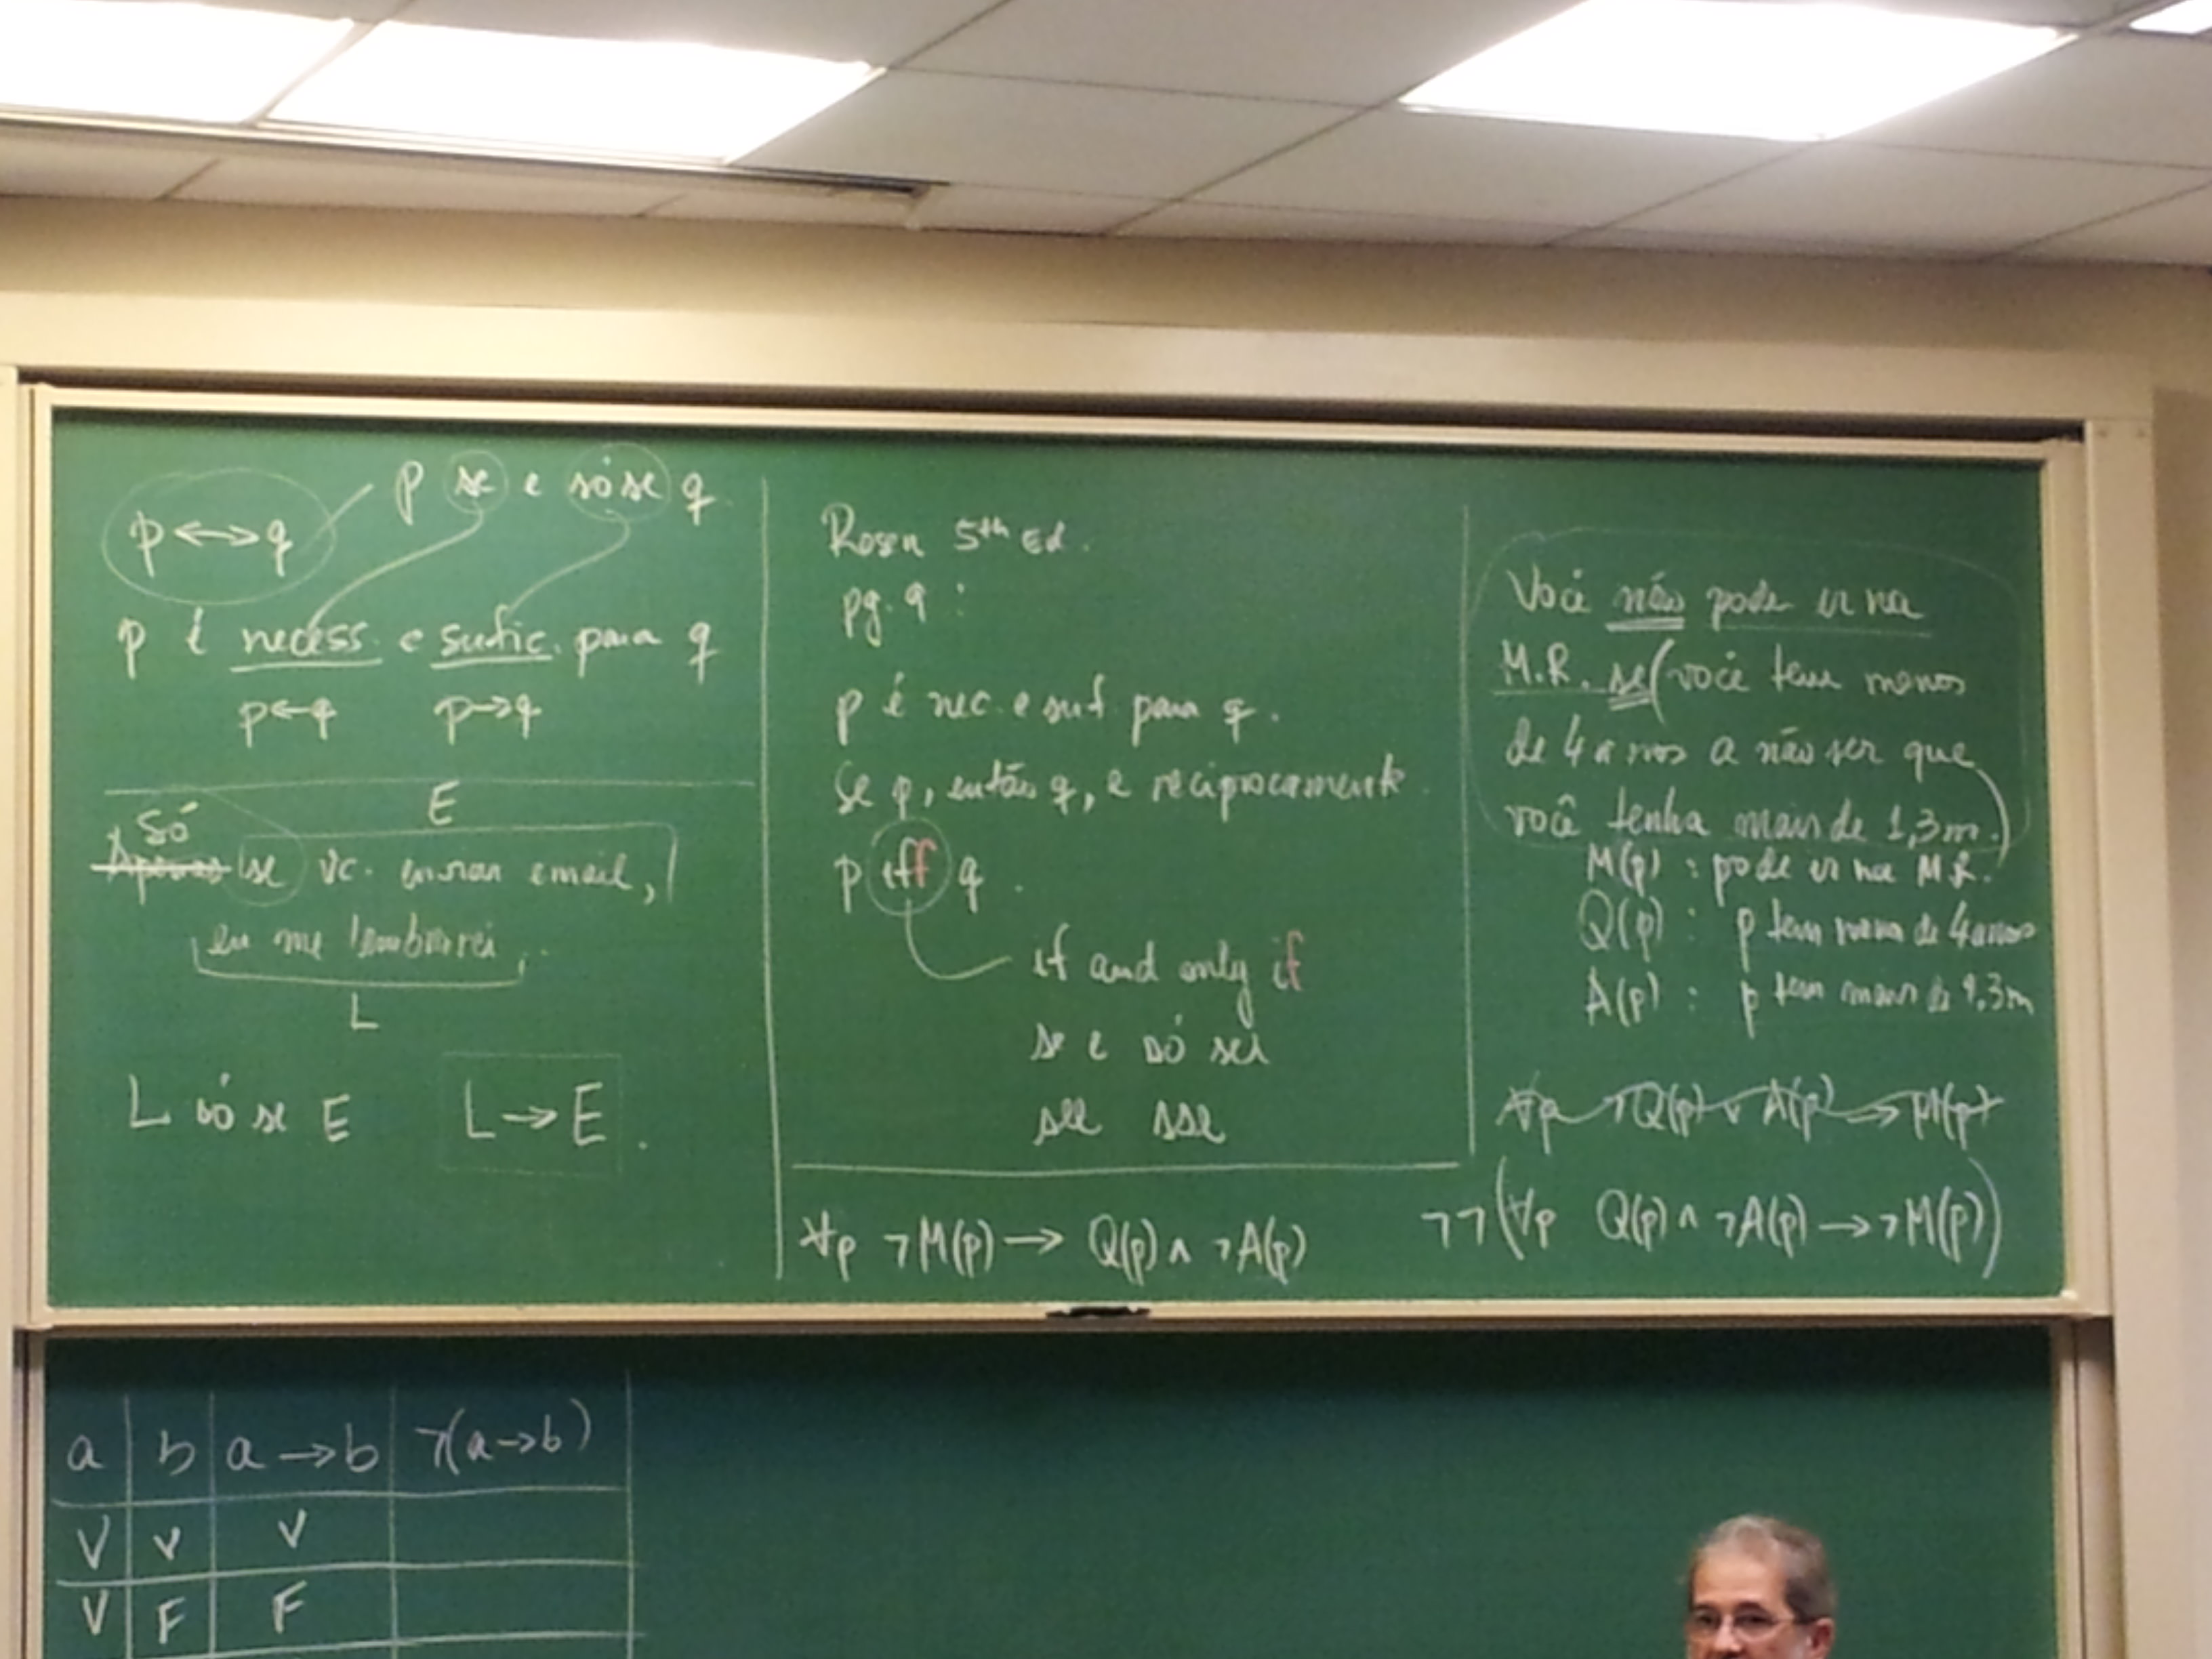 p ↔ q
p se e só se q.
p é necess. e sufic. para q
p ← q
p → q
E
Só
Apenas se vc. enviar email,
eu me lembrarei.
L
L só se E
L → E.
Rosen 5th Ed.
pg. 9 :
p é nec. e suf para q.
Se p, então q, e reciprocamente.
p iff q.
if and only if
se e só se
see sse
∀p ¬M(p) → Q(p) ∧ ¬A(p)
Você não pode ir na
M.R. se (você tem menos
de 4 anos a não ser que
você tenha mais de 1,3m.)
M(p) : pode ir na M.R.
Q(p) : p tem menos de 4 anos
A(p) : p tem mais de 1,3m
∀p ¬Q(p) ∨ A(p) → M(p)
¬¬(∀p Q(p) ∧ ¬A(p) → ¬M(p))
a b a → b ¬(a → b)
V V V
V F F